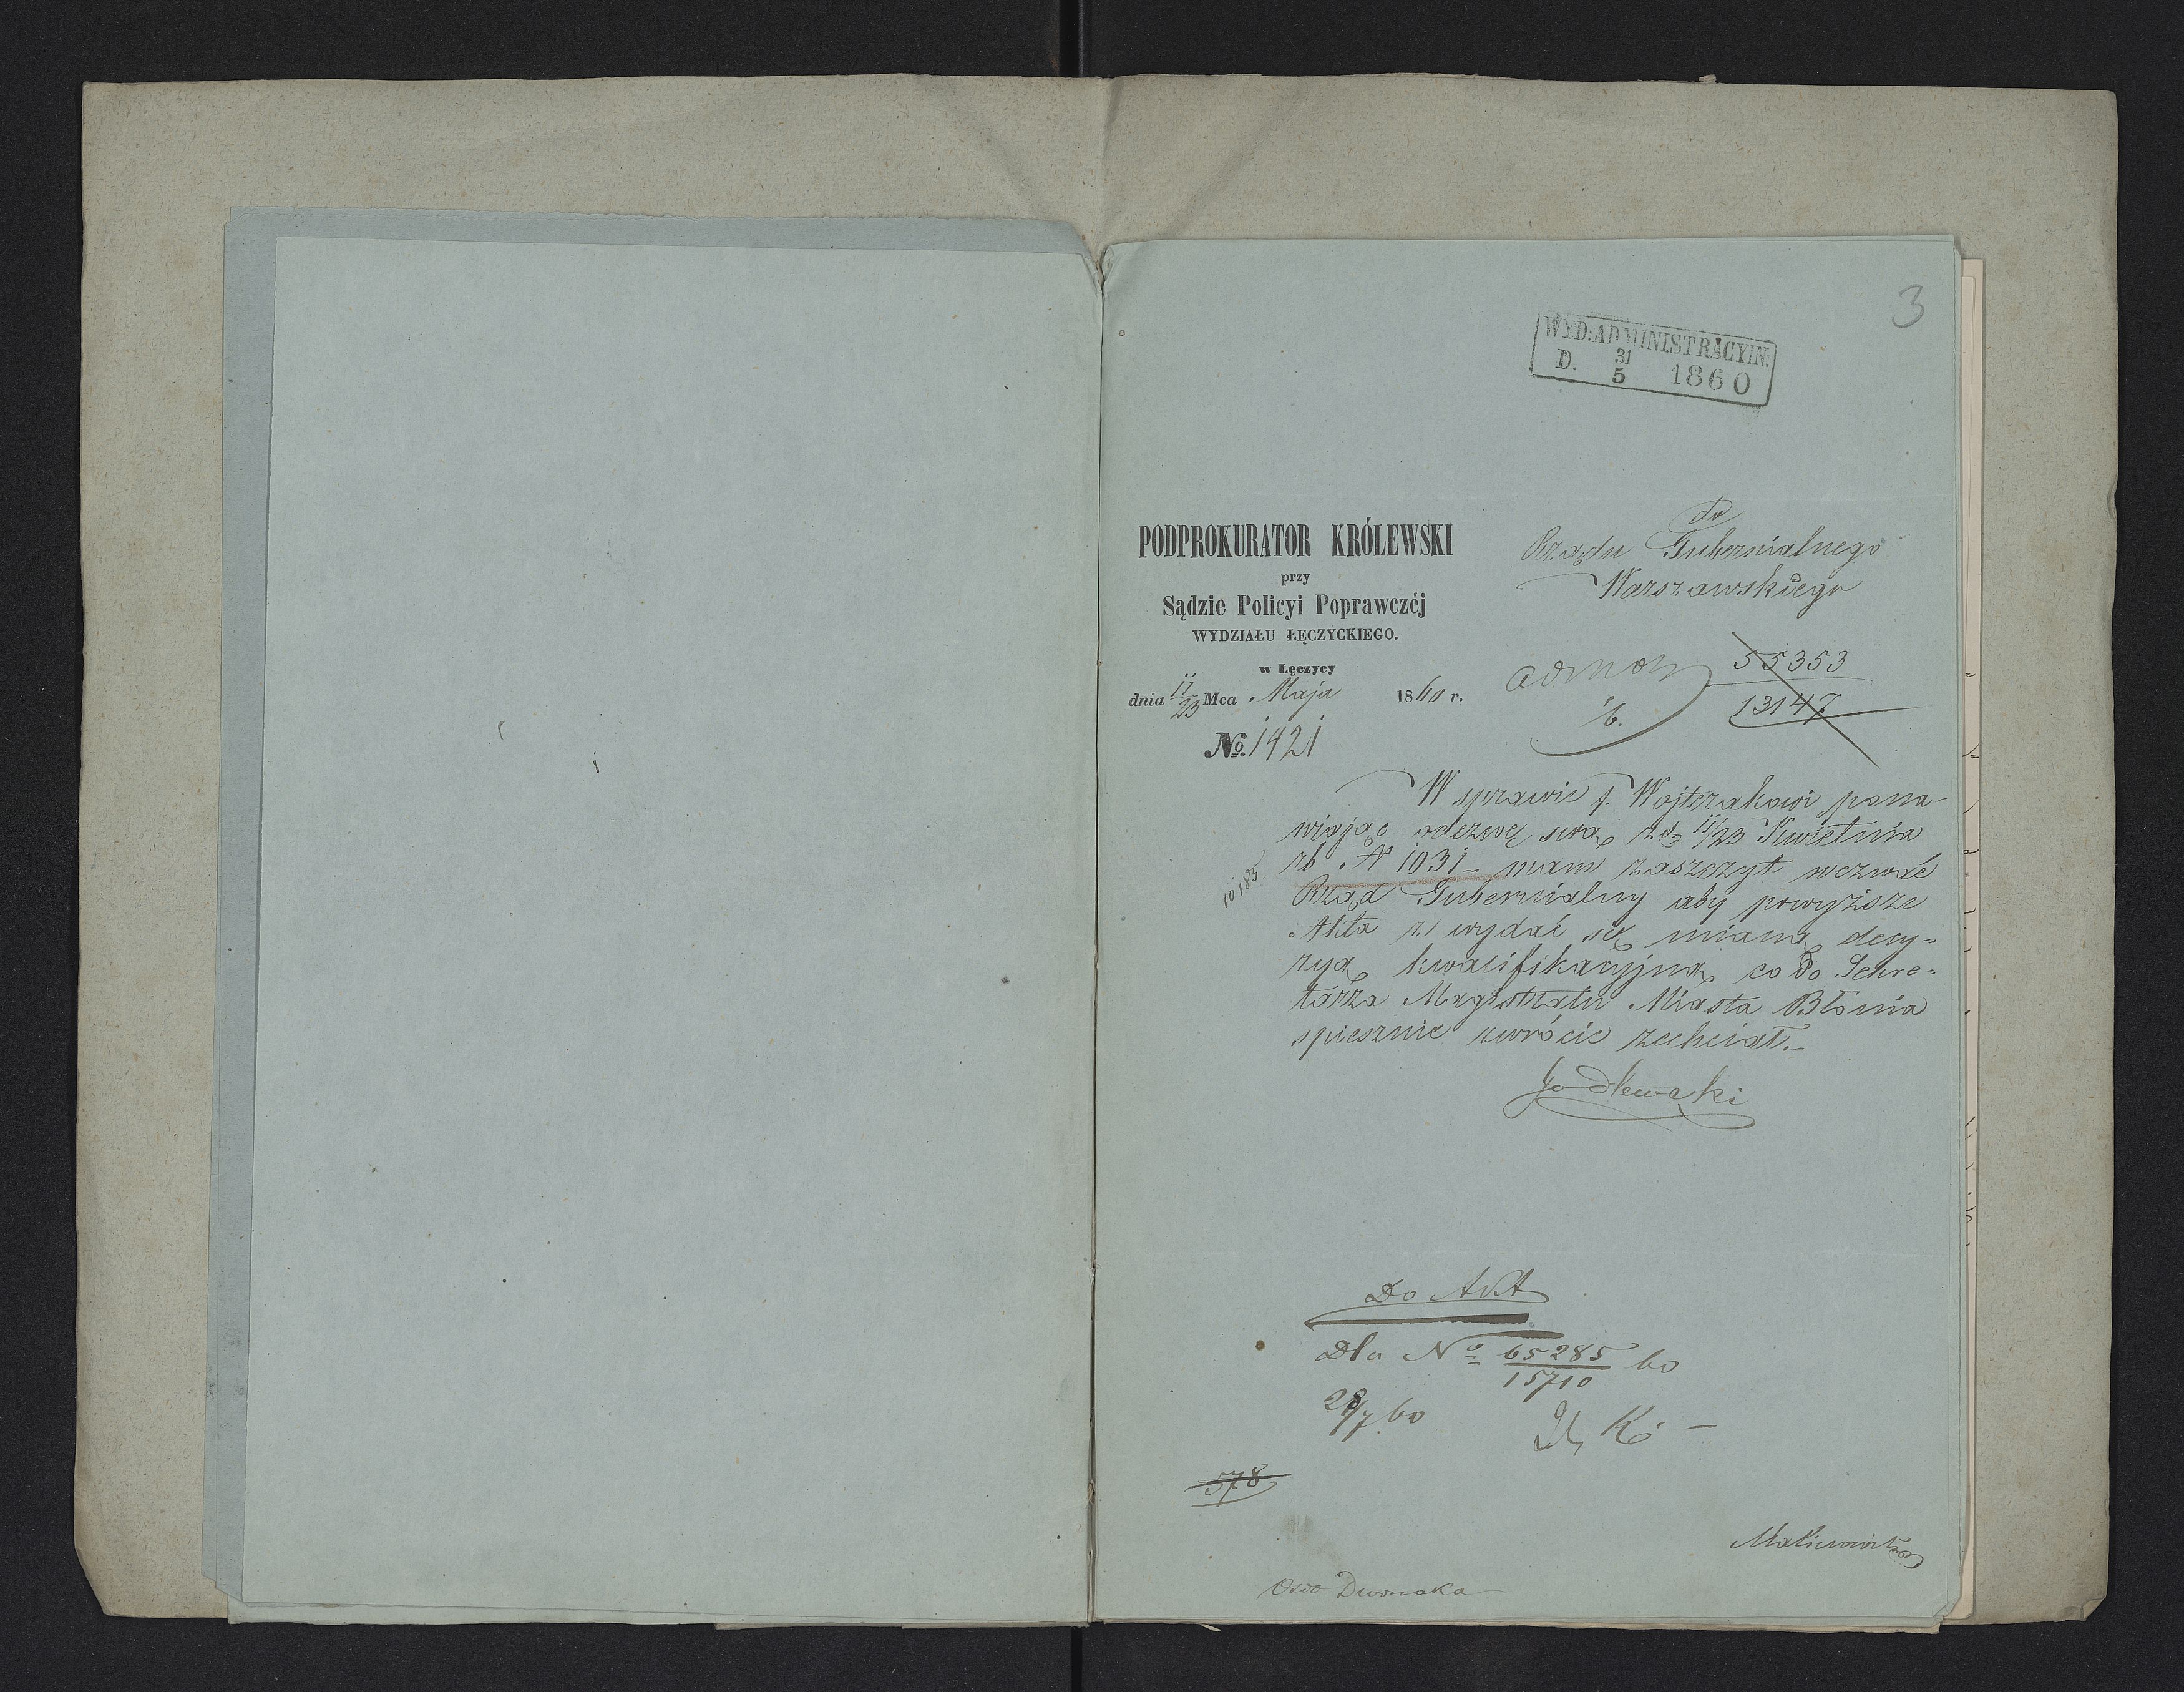 3
WYD: ADMINISTRACYJN:
D. 31/5 1860
PODPROKURATOR KRÓLEWSKI
przy
Sądzie Policyi Poprawczéj
WYDZIAŁU ŁĘCZYCKIEGO.
w Łęczycy
dnia 11/23 Mca Maja 1860 r.
No. 1421
do
Rządu Gubernialnego
Warszawskiego
55353
13147
W sprawie p. Wojterakowi pona-
wiając odezwę swą z d. 11/23 Kwietnia
rb N 1031 - mam zaszczyt wezwać
10185
Rząd Gubernialny aby powyższe
Akta z wydać się mianą decy-
zyą kwalifikacyjną co do Sekre-
tarza Magistratu Miasta Błonia
spiesznie zwrócić zechciał.-
Godlewski
Do Akt
Dla No 65285/15710 60
28/7 60
578